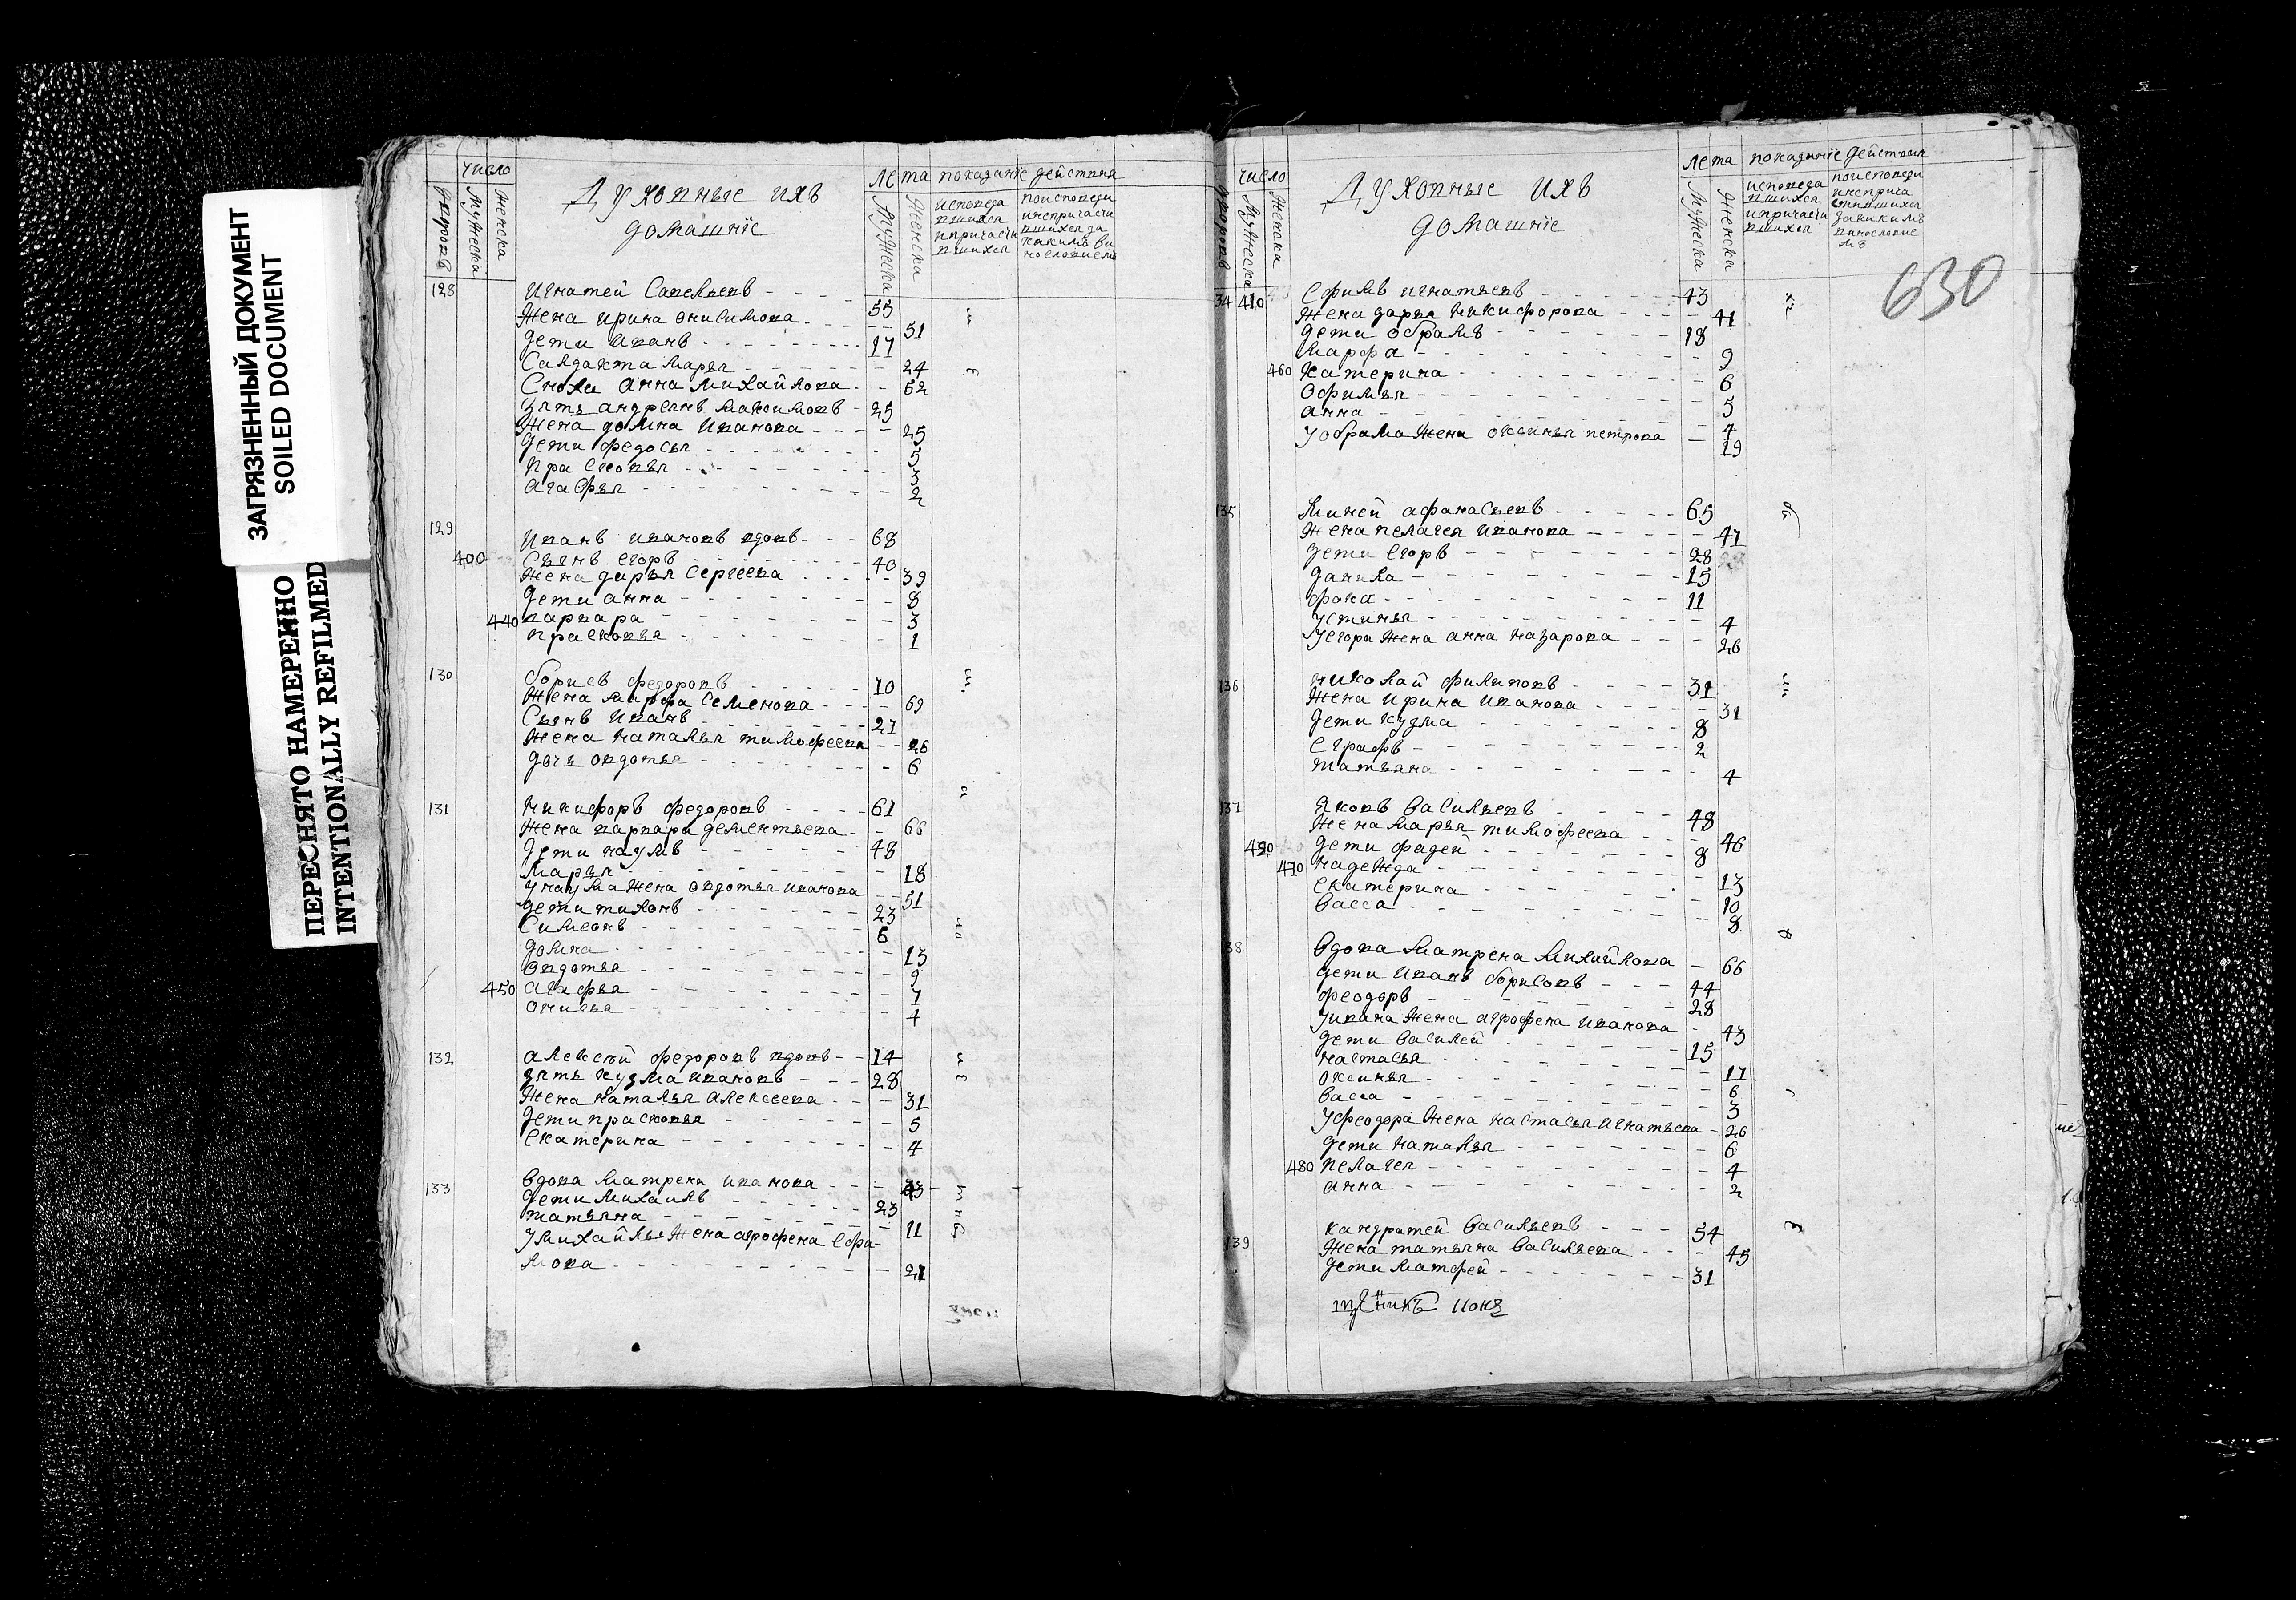 ЗАГРЯЗНЕННЫЙ ДОКУМЕНТ
SOILED DOCUMENT
ПЕРЕСНЯТО НАМЕРЕННО
INTENTIONALLY REFILMED
число
Мужеска
Женска
Духовные ихъ
домашнiе
Лета
Мужеска
Женска
показанiе действия
128 Игнатей Савельевъ 55
Жена Ирина Онисимова 51
Дети Иванъ 17
Салдахта Марья 24
Сноха Анна Михайлова 62
Зять Андреянъ Максимовъ 25
Жена Домна Иванова 25
Дети Федосья 5
Прасковья 3
Агафья 2
129 Иванъ Ивановъ вдовъ 68
400 Сынъ Егоръ 40
Жена Дарья Сергеева 39
Дети Анна 8
440 Варвара 3
Прасковья 1
130 Борисъ Федоровъ 70
Жена Марфа Семенова 69
Сынъ Иванъ 27
Жена Наталья Тимофеева 26
Дочь Овдотья 6
131 Никифоръ Федоровъ 61
Жена Варвара Дементьева 66
Дети Наумъ 48
Марья 18
У Наума Жена Овдотья Иванова 51
Дети Тихонъ 23
Симеонъ 6
Домна 13
Овдотья 9
450 Агафья 7
Онисья 4
132 Алексей Федоровъ вдовъ 74
Зять Кузма Ивановъ 28
Жена Наталья Алексеева 31
Дети Прасковья 5
Екатерина 4
133 Вдова Матрена Иванова
Дети Михаилъ 23
Татьяна 11
У Михайлы Жена Агрофена Ефра-
мова 21
число
Мужеска
Женска
Духовные ихъ
домашнiе
Лета
Мужеска
Женска
показанiе действия
630
34 410 Ефимъ Игнатьевъ 43
Жена Дарья Никифорова 41
Дети Обрамъ 18
Марфа 9
460 Катерина 6
Офимья 5
Анна 4
У Обрама Жена Оксинья Петрова 19
135 Миней Афанасьевъ 65
Жена Пелагея Иванова 47
Дети Егоръ 28
Данила 15
Фока 11
Устинья 4
У Егора Жена Анна Назарова 26
136 Николай Филиповъ 31
Жена Ирина Иванова 31
Дети Кузма 8
Еграфъ 2
Татьяна 4
137 Яковъ Васильевъ 48
Жена Марья Тимофеева 46
420 Дети Фадей 8
470 Надежда 13
Екатерина 10
Васса 8
38 Вдова Матрена Михайлова 66
Дети Иванъ Борисовъ 44
Феодоръ 28
У Ивана Жена Агрофена Иванова 43
Дети Василей 15
Настасья 17
Оксинья 6
Васса 3
У Феодора Жена Настасья Игнатьева 26
Дети Наталья 6
480 Пелагея 4
Анна 2
139 Кандратей Васильевъ 54
Жена Татьяна Васильева 45
Дети Матфей 31